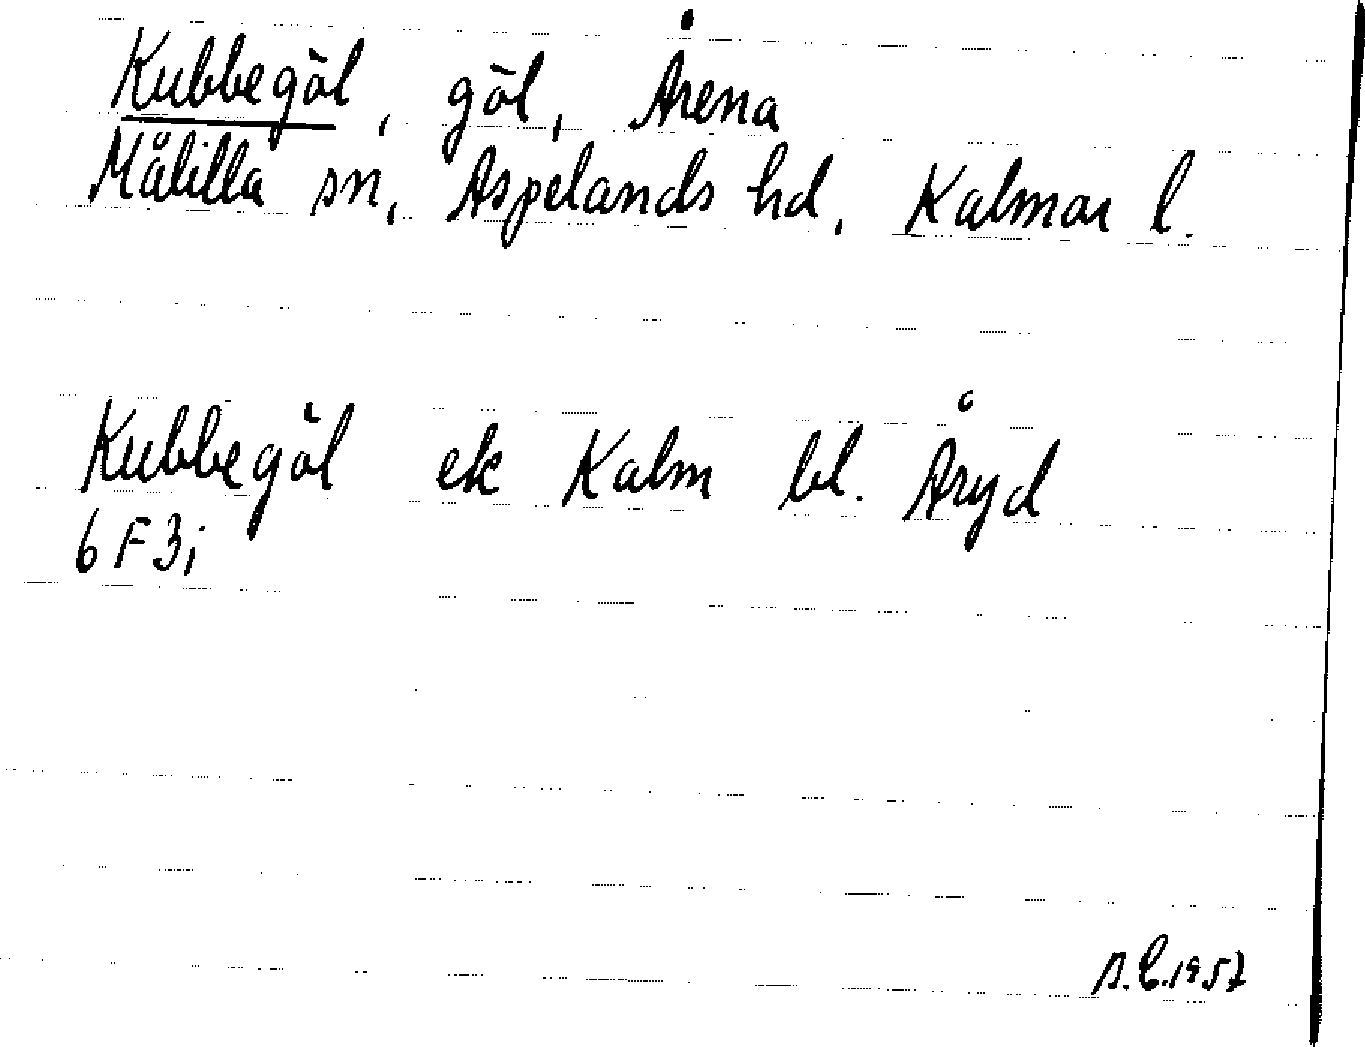 Kubbegöl, göl, Årena
Målilla sn, Aspelands hd, Kalmar l.
Kubbegöl ek Kalm bl. Åryd
6F3i
1957